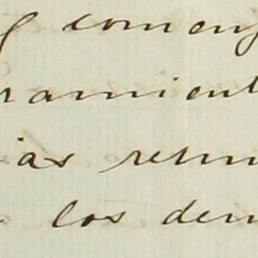 y comenz
ramient
ias reun
los dem